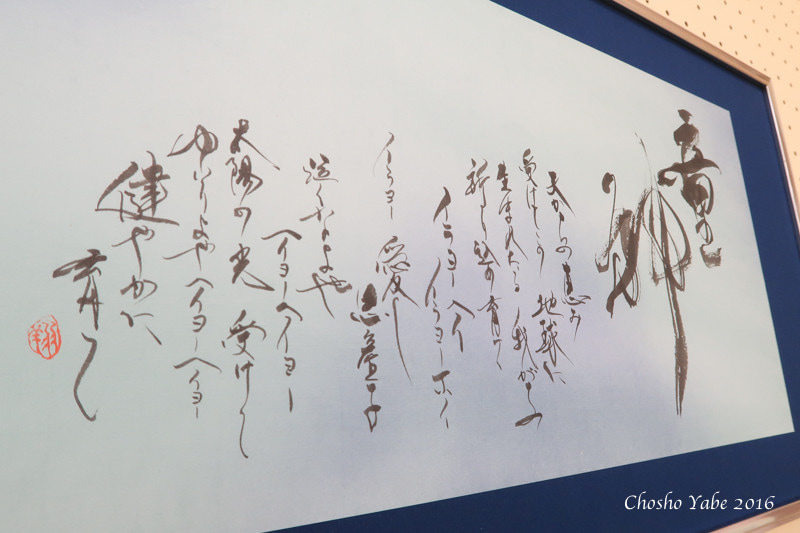 童神
天からの恵み
受けてこの 地球に
生まれたる 我が子
祈り込め 育て
イラヨーヘイ イラヨーホイ
イラヨー 愛し
思産子
泣くなよや
ヘイヨーヘイヨー
太陽の光 受けて
ゆいりよや ヘイヨーヘイヨー
健やかに
育て
Chosho Yabe 2016